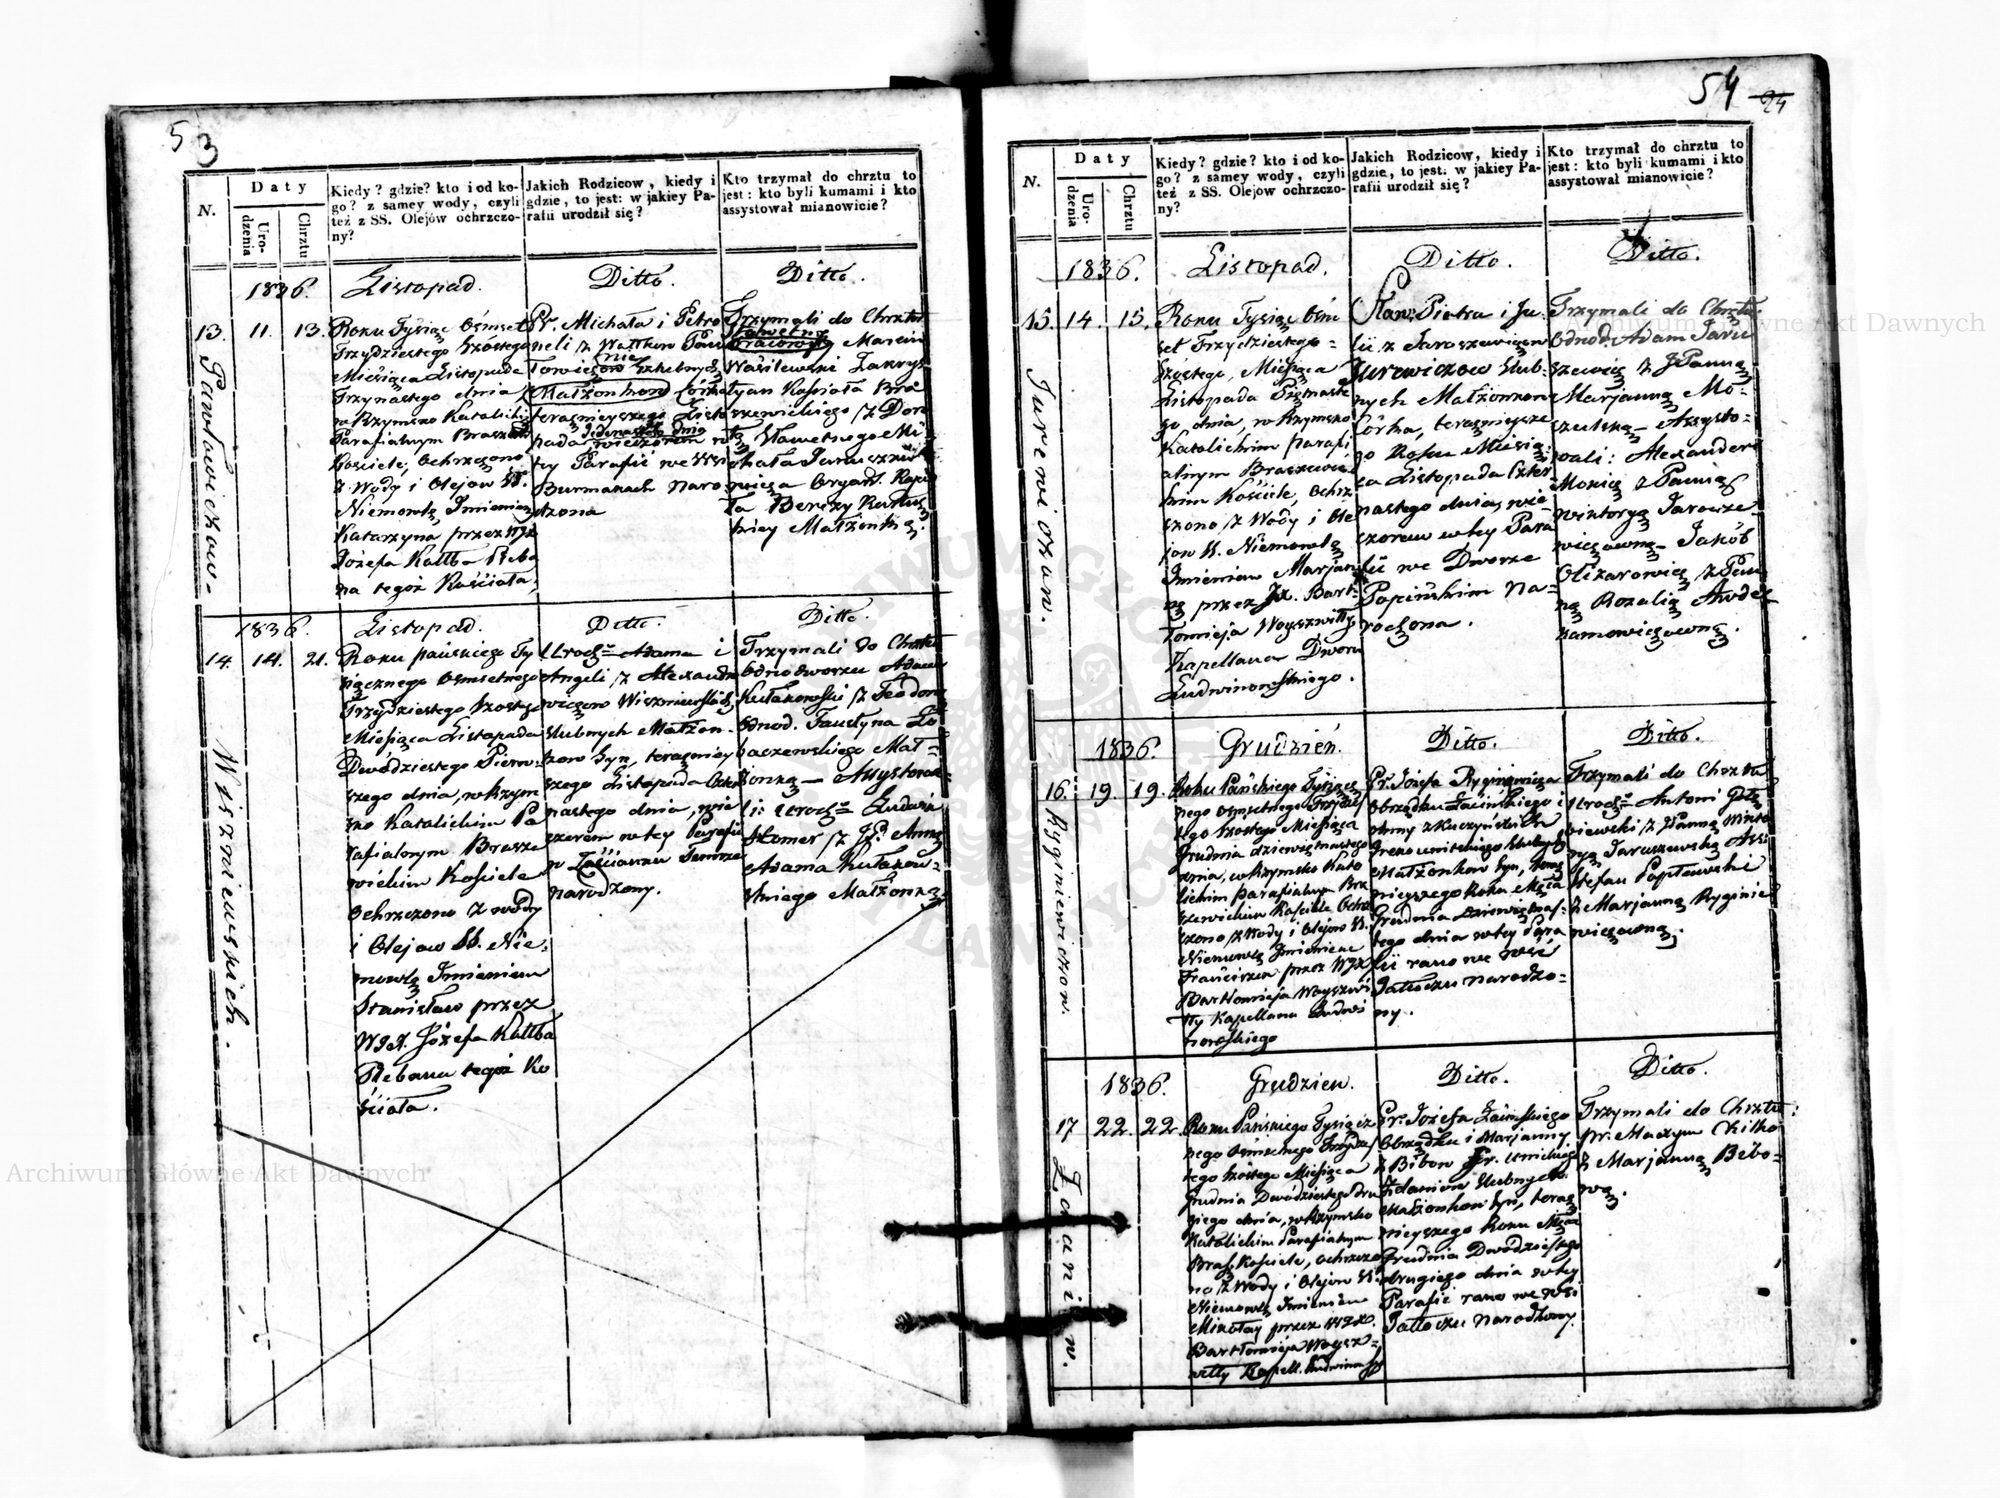 53
N.
Daty
Uro-
dzenia
Chrztu
Kiedy? gdzie? kto i od ko-
go? z samey wody, czyli
też z SS. Olejów ochrzczo-
ny?
Jakich Rodzicow, kiedy i
gdzie, to jest: w jakiey Pa-
rafii urodził się?
Kto trzymał do chrztu to
jest: kto byli kumami i kto
assystował mianowicie?
1836.
Listopad.
Ditto.
Ditto.
13.
11.
13.
Pawłowiczow.
Roku Tysiąc Ośmset
Trzydziestego szóstego
Miesiąca Listopada
Trzynastego dnia
w Rzymsko Katolickim
Parafialnym
Kościele, Ochrzczono
z Wody i Olejow SS.
Niemowlę Imieniem
Katarzyna przez WJX
Józefa Kałłba Pleba
na tegoż Kościoła.
Pr. Michała i Petro
neli z
Małżonkow Córka
teraźnieyszego Listo
pada wieczorem w
tey Parafii we Wsi
Burmakach naro
dzona
Trzymali do Chrztu
Marcin
Wasilewski Zakrys
tyan Kościoła Bra
szewickiego z Dom
Sławetnego Mi
chała
Organ.
Małżonką.
1836.
Listopad.
Ditto.
Ditto.
14.
14.
21.
Wiszniewskich.
Roku pańskiego Ty
siącznego Ośmsetnego
Trzydziestego szóstego
Miesiąca Listopada
Dwódziestego Pierw-
szego dnia, w Rzym
sko Katolickim Pa
rafialnym Brasze
wickim Kościele
Ochrzczono z wody
i Olejow SS. Nie-
mowlę Imieniem
Stanisław przez
WJX. Józefa Kałłba
Plebana tegoż Ko
ścioła.
Urodz. Adama i
Angeli z Alexandro
wiczow Wiszniewskich
slubnych Małżon-
kow Syn, teraźniey
szego Listopada Czter
nastego dnia, wie
czorem w tey Parafii
w Zaścianku
narodzony.
Trzymali do Chrztu
Odnodworzec Adam
Kułakowski z Teodorą
Odnod. Faustyna
Mał-
żonką — Assystowa
li: Urodz. Ludwik
z JP. Anną
Adama Kułakow-
skiego Małżonką
54
24
N.
Daty
Uro-
dzenia
Chrztu
Kiedy? gdzie? kto i od ko-
go? z samey wody, czyli
też z SS. Olejów ochrzczo-
ny?
Jakich Rodzicow, kiedy i
gdzie, to jest: w jakiey Pa-
rafii urodził się?
Kto trzymał do chrztu to
jest: kto byli kumami i kto
assystował mianowicie?
1836.
Listopad.
Ditto.
Ditto.
15.
14.
15.
Jurewiczow.
Roku Tysiąc Ośm
set Trzydziestego-
szóstego, Miesiąca
Listopada Piętnaste
go dnia, w Rzymsko
Katolickim parafi
alnym Braszewic
kim Kościele, Ochrz
czono z Wody i Ole
jow SS. Niemowlę
Imieniem Marjan
nę przez JX. Bart-
łomieja Woyszwiłły
Kapellana Dworu
Ludwinowskiego.
Sław. Piotra i Ju
lii z Jaroszewiczow
Jurewiczow slub-
nych Małżonkow
Córka, teraźniejsze
go Roku Miesią
ca Listopada Czter
nastego dnia wie
czorem w tey Para
fii we Dworze
Popińskim na-
rodzona.
Trzymali do Chrztu
Odnod. Adam Jaro
szewicz z JPanną
Marjanną Mo-
szulską — Assysto-
wali: Alexander
z Panią
Wiktoryą Jarosze-
wiczowną — Jakób
Olizarowicz z Pan
ną Rozalią
1836.
Grudzień.
Ditto.
Ditto.
16.
19.
19.
Ryginiewiczow.
Roku Pańskiego Tysiącz
nego Ośmsetnego Trzydzies
tego szóstego Miesiąca
Grudnia dziewiętnastego
dnia, w Rzymsko Kato
lickim Parafialnym Bra
szewickim Kościele Ochrz
czono z Wody i Olejow SS.
Niemowlę Imieniem
Franciszek przez WJX
Bartłomieja Woyszwi
łły Kapellana Ludwi
nowskiego
Pr. Józefa Ryginiewicza
Obrządku Łacińskiego i
Anny z Kuczyńskich
Greko unitskiego slubnych
Małżonkow Syn, teraź
nieyszego Roku Mśca
Grudnia Dziewiętnas-
tego dnia w tey Para
fii rano we wsi
Jatłoczu narodzo-
ny.
Trzymali do Chrztu
Urodz. Antoni
z JPanną Wikto
ryą Jaruszewską Assi
Stefan
z Marjanną Ryginie
wiczowną.
1836.
Grudzien.
Ditto.
Ditto.
17
22.
22.
Zdaniow.
Roku Pańskiego Tysiącz
nego Ośmsetnego Trzydzies
tego szóstego Miesiąca
Grudnia Dwódziestego dru
giego dnia, w Rzymsko
Katolickim Parafialnym
Bras. Kościele, ochrzczo
no z Wody i Olejow SS.
Niemowlę Imieniem
Mikołay przez WJX.
Bartłomieja Woysz-
wiłły Kapell.
Pr. Józefa Łacińskiego
Obrządku i Marjanny
z Bibow Gr. Unickiego
Zdaniow slubnych
Małżonkow Syn, teraź
nieyszego Roku Mśca
Grudnia Dwódziestego
drugiego dnia w tey
Parafii rano we wsi
Jatłoczu Narodzony.
Trzymali do Chrztu:
pr.
z Marjanną Bibo-
wą.
Archiwum Główne Akt Dawnych
Archiwum Główne Akt Dawnych